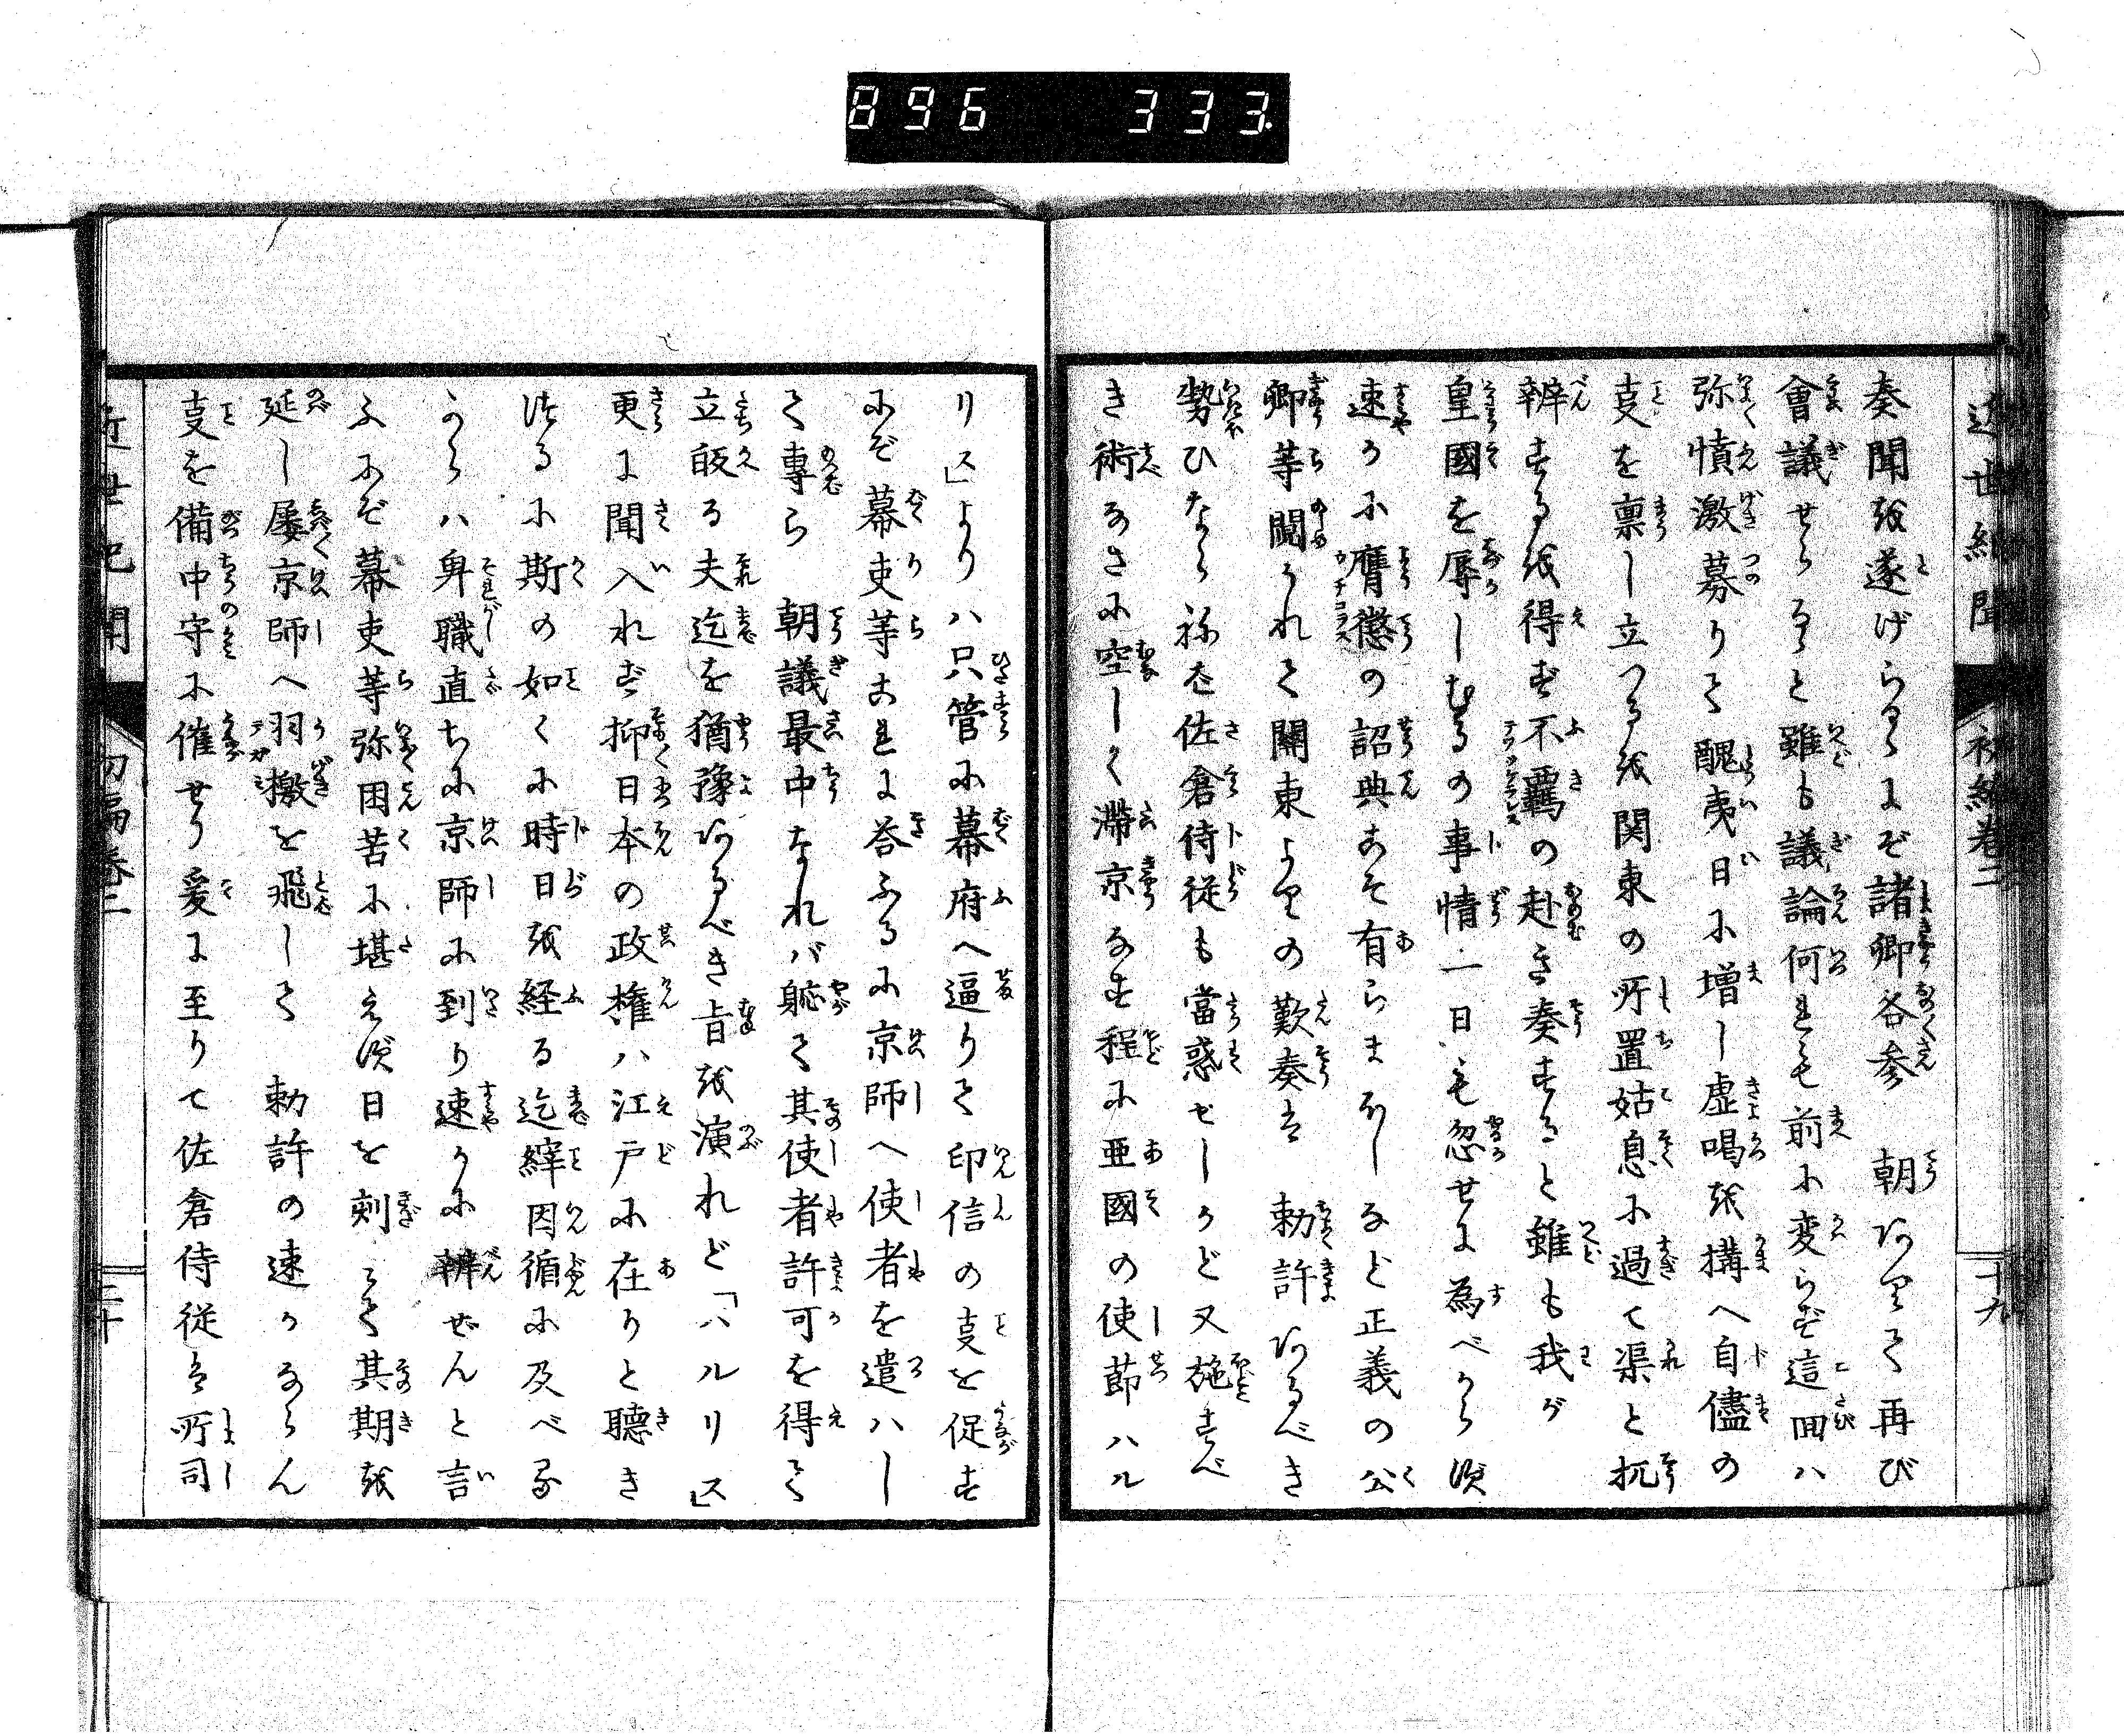 896 333.
近世紀聞 初編巻二 十九
奏聞を遂げらるゝにぞ諸卿各参 朝ありて再び
會議せらるゝと雖も議論何れも前に変らず這回ハ
弥憤激募りて醜夷日に増し虚喝を搆へ自儘の
支を禀し立つるを関東の所置姑息に過て渠と抗
辨するを得ず不羈の赴き奏すると雖も我が
皇國を辱しむるの事情一日も忽せに為べからず
速かに膺懲の詔典こそ有らまほしなど正義の公
卿等聞かれて關東よりの歎奏は 勅許あるべき
勢ひならねば佐倉侍従も當惑せしかど又施すべ
き術なさに空しく滞京なす程に亜國の使節ハル
リス」よりハ只管に幕府へ逼りて印信の支を促す
にぞ幕吏等これに答ふるに京師へ使者を遣ハし
て專ら 朝議最中なれバ軈て其使者許可を得て
立皈る夫迄を猶豫あるべき旨を演れど「ハルリス」
更に聞入れず抑日本の政権ハ江戸に在りと聴き
つるに斯の如くに時日を経る迄縡因循に及べる
からハ卑職直ちに京師に到り速かに辨ぜんと言
ふにぞ幕吏等弥困苦に堪えず日を刻して其期を
延し屡京師へ羽檄を飛して 勅許の速かならん
支を備中守に催せり爰に至りて佐倉侍従は所司
近世紀聞 初編巻二 二十